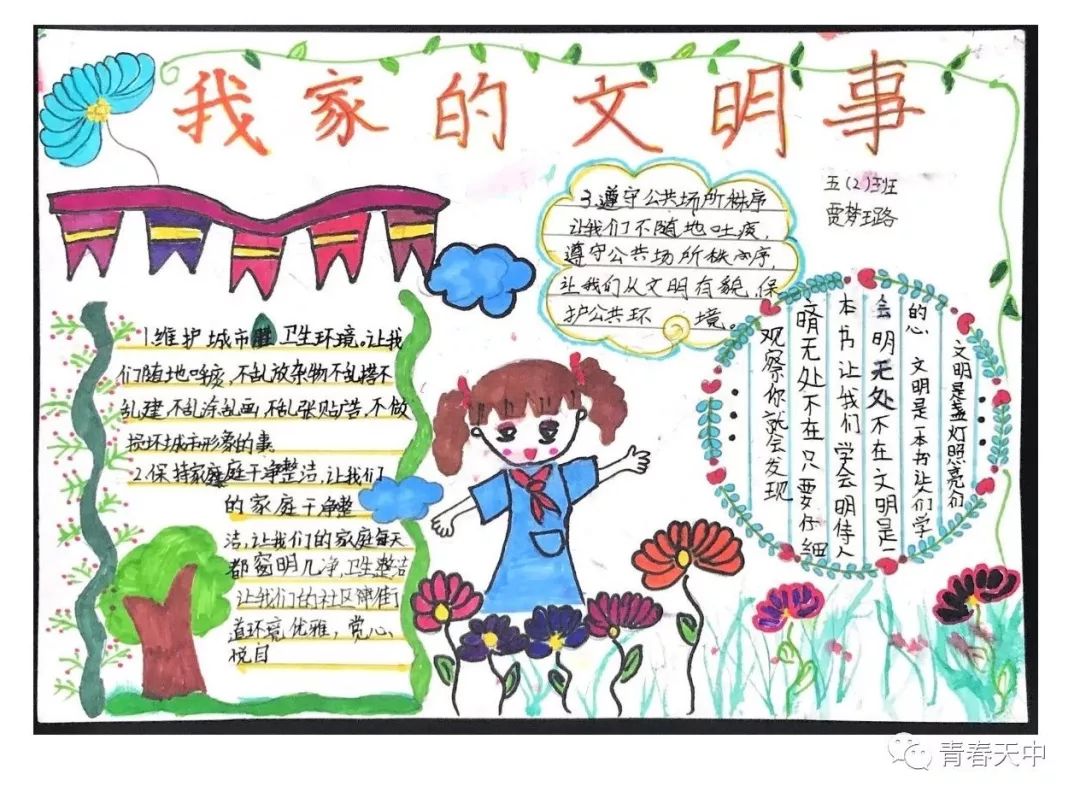 我家的文明事
五(2)班
贾梦珞
3.遵守公共场所秩序
让我们不随地吐痰,
遵守公共场所秩序,
让我们从文明有貌,保
护公共环境。
1.维护城市 卫生环境。让我
们随地吐痰,不乱放杂物不乱搭不
乱建,不乱涂乱画,不乱张贴广告,不做
损坏城市形象的事
2.保持家庭干净整洁,让我们
的家庭干净整
洁,让我们的家庭每天
都窗明几净,卫生整洁
让我们的社区 街
道环境优雅,赏心
悦目
文明是盏灯照亮们
的心 文明是一本书让人们学
会明无处不在文明是一
本书让我们学会明待人
晴无处不在只要仔细
观察你就会发现
青春天中